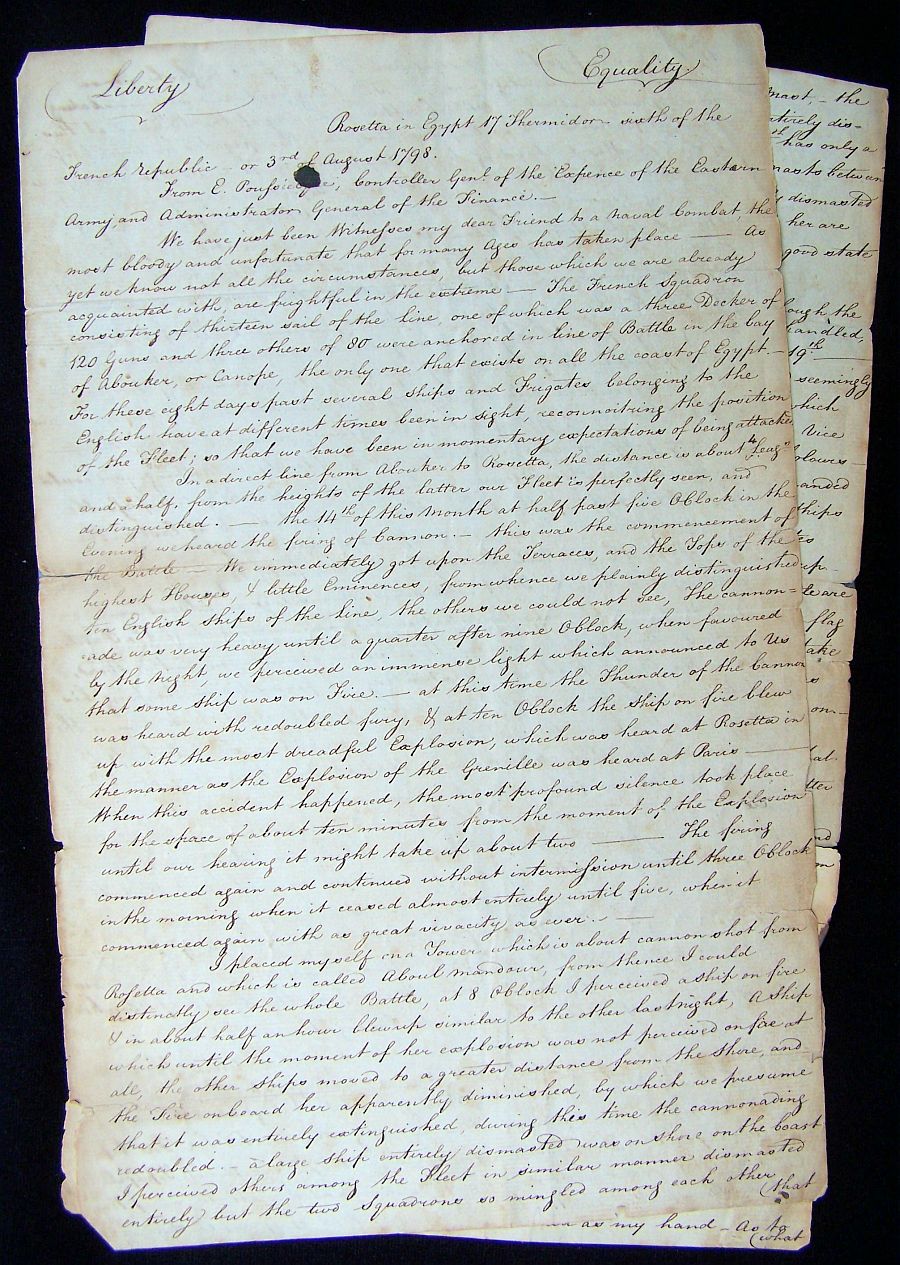 Liberty Equality
Rosetta in Egypt 17 Thermidor sixth of the
French republic or 3rd of August 1798.
From E. Controller Genl. of the Expence of the Eastern
Army, and Administrator General of the Finance. —
We have just been Witnesses my dear Friend to a naval Combat, the
most bloody and unfortunate that for many Ages has taken place — As
yet we know not all the circumstances, but those which we are already
acquainted with, are frightful in the extreme — The French Squadron
consisting of thirteen sail of the line, one of which was a three Decker of
120 Guns and three others of 80 were anchored in line of Battle in the bay
of Abouker, or Canope, the only one that exists on all the coast of Egypt. —
For these eight days past several Ships and Frigates belonging to the
English have at different times been in sight reconnoitring the position
of the Fleet; so that we have been in momentary expectations of being attacked
In a direct line from Abouker to Rosetta, the distance is about 4 Leags
and a half, from the heights of the latter our Fleet is perfectly seen, and
distinguished. — the 14th of this Month at half past five OClock in the
Evening we heard the firing of Cannon. — this was the commencement of
the Battle — We immediately got upon the Terraces, and the Tops of the
highest Houses, & little Eminences, from whence we plainly distinguished
ten English Ships of the Line, the others we could not see, The cannon=
ade was very heavy until a quarter after nine OClock, when favoured
by the Night, we perceived an immense light which announced to Us
that some Ship was on Fire. — at this time the Thunder of the Cannon
was heard with redoubled fury, & at ten OClock the Ship on fire blew
up with the most dreadful Explosion, which was heard at Rosetta in
the manner as the Explosion of the Grenille was heard at Paris —
When this accident happened, the most profound silence took place
for the space of about ten minutes from the moment of the Explosion
until our hearing it might take up about two — The firing
commenced again and continued without intermission until three OClock
in the morning when it ceased almost entirely until five, when it
commenced again with as great vivacity as ever. —
I placed myself on a Tower which is about cannon shot from
Rosetta and which is called Aboul mandour, from thence I could
distinctly see the whole Battle, at 8 OClock I perceived a Ship on fire
& in about half an hour blew up similar to the other last night, A Ship
which until the moment of her explosion was not perceived on fire at
all, the other Ships moved to a greater distance from the Shore, and
the Fire onboard her apparently diminished, by which we presume
that it was entirely extinguished, during this time the cannonading
redoubled. — a large Ship entirely dismasted was on shore on the Coast
I perceived others among the Fleet in similar manner dismasted
entirely but the two Squadrons so mingled among each other
that
mast, — the
entirely dis=
has only a
masts between
dismasted
her are
good state
the
19th
seemingly
which
Vice
colours —
Ships
up
are
flag
take
as my hand — As to
what